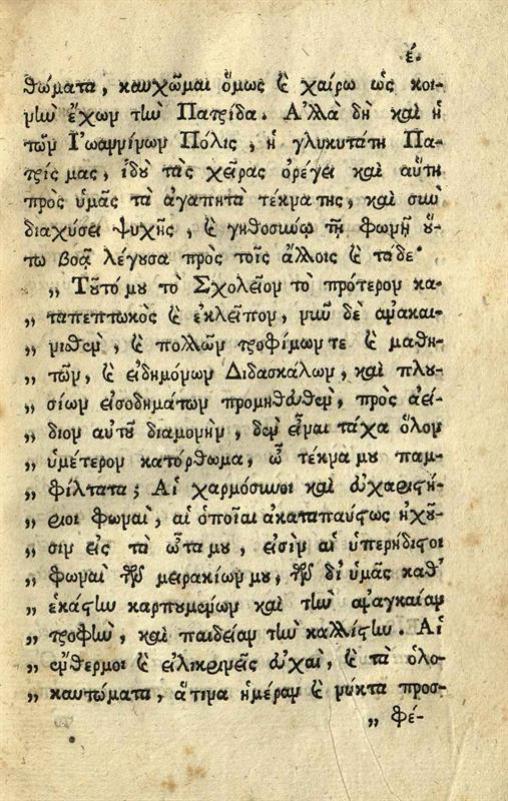 έ.
θώματα, καυχῶμαι ὅμως ϗ χαίρω ὡς κοι-
νὴν ἔχων τὴν Πατρίδα. Ἀλλὰ δὴ καὶ ἡ
τῶν Ἰωαννίνων Πόλις, ἡ γλυκυτάτη Πα-
τρίς μας, ἰδοὺ τὰς χεῖρας ὀρέγει καὶ αὕτη
πρὸς ὑμᾶς τὰ ἀγαπητὰ τέκνα της, καὶ σὺν
διαχύσει ψυχῆς, ϗ γηθοσύνῳ τῇ φωνῇ οὕ-
τω βοᾷ λέγουσα πρὸς τοῖς ἄλλοις ϗ τάδε·
„ Τοῦτό μου τὸ Σχολεῖον τὸ πρότερον κα-
„ ταπεπτωκὸς ϗ ἐκλεῖπον, νῦν δὲ ἀνακαι-
„ νισθὲν, ϗ πολλῶν τροφίμων τε ϗ μαθη-
„ τῶν, ϗ εἰδημόνων Διδασκάλων, καὶ πλου-
„ σίων εἰσοδημάτων προμηθευθὲν, πρὸς ἀεί-
„ διον αὐτοῦ διαμονὴν, δὲν εἶναι τάχα ὅλον
„ ὑμέτερον κατόρθωμα, ὦ τέκνα μου παμ-
„ φίλτατα; Αἱ χαρμόσυνοι καὶ εὐχαριστή-
„ ριοι φωναὶ, αἱ ὁποῖαι ἀκαταπαύστως ἠχοῦ-
„ σιν εἰς τὰ ὦτά μου, εἰσὶν αἱ ὑπερήδιστοι
„ φωναὶ τῶν μειρακίων μου, τῶν δι' ὑμᾶς καθ'
„ ἑκάστην καρπουμένων καὶ τὴν ἀναγκαίαν
„ τροφὴν, καὶ παιδείαν τὴν καλλίστην. Αἱ
„ ἔνθερμοι ϗ εἰλικρινεῖς εὐχαὶ, ϗ τὰ ὁλο-
„ καυτώματα, ἅτινα ἡμέραν ϗ νύκτα προσ-
„ φέ-